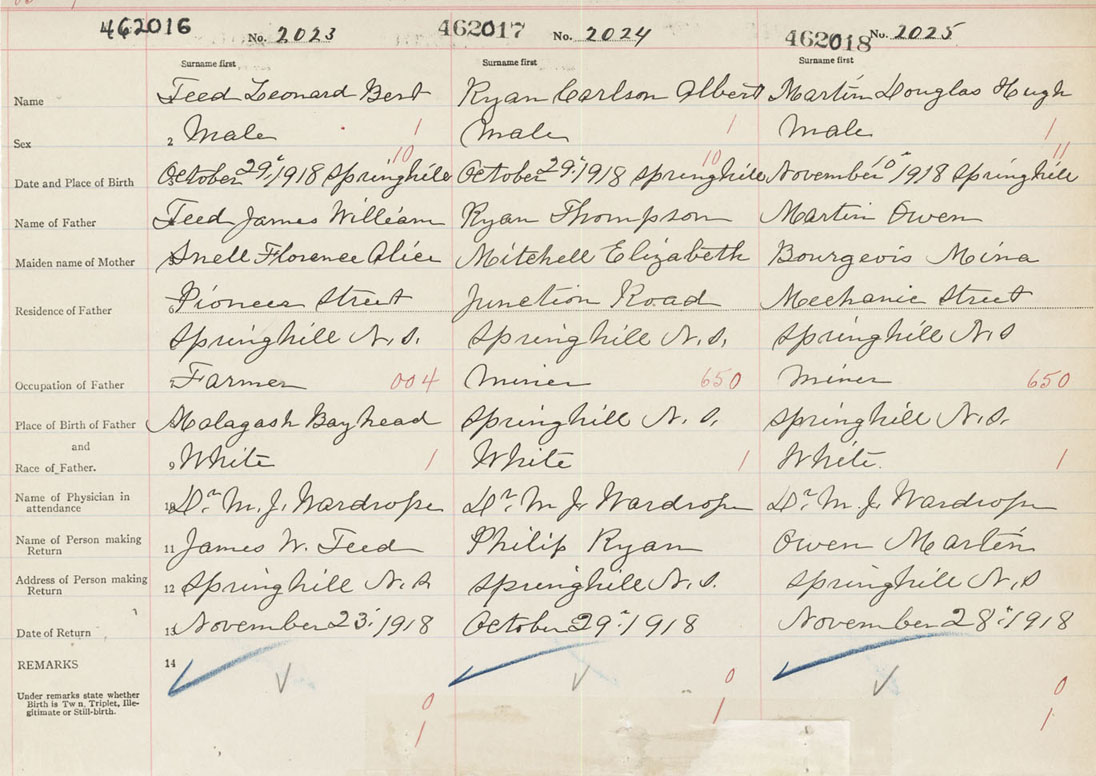 462016 No. 2023 462017 No. 2024 462018 No. 2025
Surname first Surname first Surname first
Name Teed Leonard Bert Ryan Carlson Albert Martin Douglas Hugh
Sex 2 Male 1 Male 1 Male 1
10 10 11
Date and Place of Birth October 29", 1918 Springhill October 29". 1918 Springhill November 10" 1918 Springhill
Name of Father Teed James William Ryan Thompson Martin Owen
Maiden name of Mother Snell Florence Alice Mitchell Elizabeth Bourgeois Mina
Residence of Father Pioneer Street Junction Road Mechanic Street
Springhill N.S. Springhill N.S. Springhill N.S
Occupation of Father Farmer 004 Miner 650 Miner 650
Place of Birth of Father Malagash Bayhead Springhill N.S. Springhill N.S.
and
Race of Father. 9 White 1 White 1 White. 1
Name of Physician in attendance 10 Dr. M. J. Wardrope Dr. M J. Wardrope Dr. M J. Wardrope
Name of Person making Return 11 James W. Teed Philip Ryan Owen Martin
Address of Person making Return 12 Springhill N.S. Springhill N.S. Springhill N.S
Date of Return 13 November 23. 1918 October 29". 1918 November 28", 1918
REMARKS 14
Under remarks state whether
Birth is Tw n, Triplet, Ille-
gitimate or Still-birth.
0 0 0
1 1 1